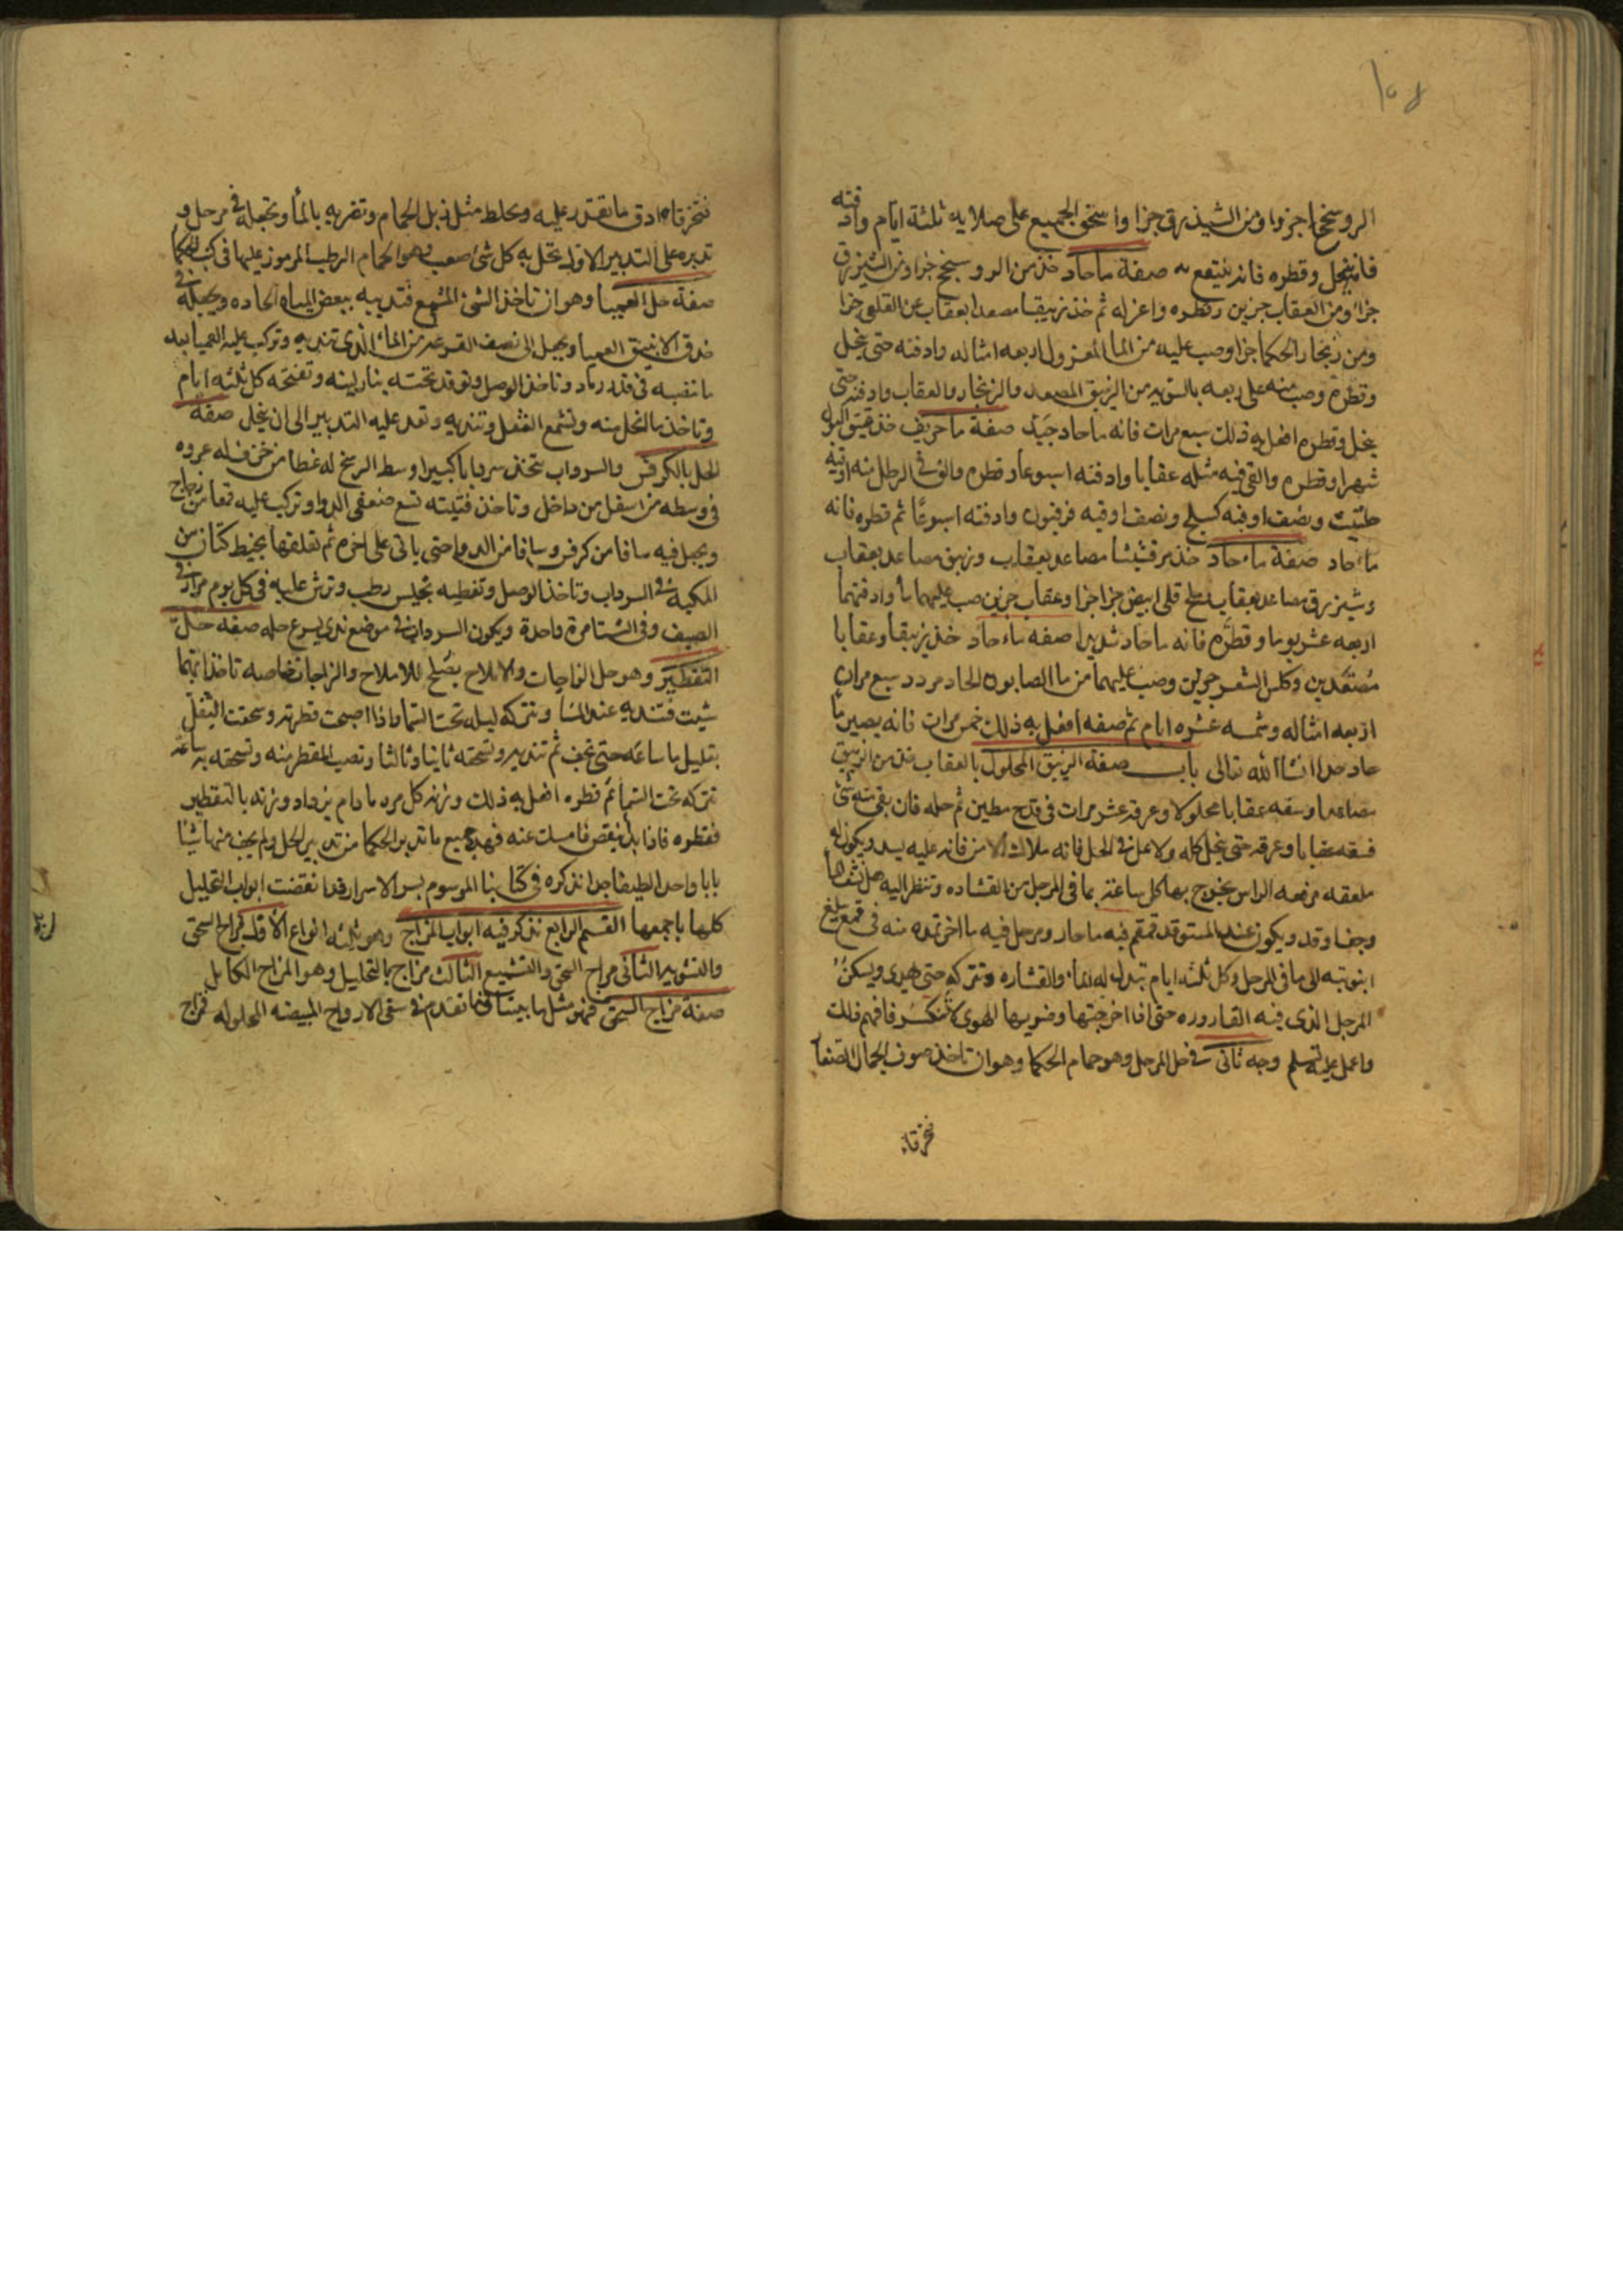 ١٥٨
الروسختج اجزوا ومن الشيذرق جزا واسحق الجميع على صلايه ثلثة ايام وادفنه
فانه ينحل وقطره فانه ينتفع به صفة ما حاد خذ من الروسختج جزا ومن الشيزرق
جزا ومن العقاب جزين وقطره واعزله ثم خذ زيبقا مصعدا بعقاب عن القلعى جزا
ومن زنجار الحكما جزا وصب عليه من الما المعزول اربعه امثاله وادفنه حتى ينحل
وقطره وصب منه على ربعه بالسويه من الزيبق المصعد والزنجار والعقاب وادفنه حتى
ينحل وقطره افعل به ذلك سبع مرات فانه ما حاد جيد صفة ما حريف خذ عتيق البول
شهرا وقطره والقى فيه مثله عقابا وادفنه اسبوعا وقطره والق فى الرطل منه اوقيه
حلتيت ونصف اوقيه كسيلج ونصف اوقيه فرفيون وادفنه اسبوعا ثم قطره فانه
ماء حاد صفة ماء حاد خذ مرقشيشا مصاعد بعقاب وزيبق مصاعد بعقاب
وشيزرق مصاعد بعقاب ملح قلى ابيض جزا جزا وعقاب جزين صب عليهما ما وادفنهما
اربعه عشر يوما وقطره فانه ما حاد شديدا صفه ماء حاد خذ زيبقا وعقابا
مصعدين وكلس الشعر جزين وصب عليهما من ما الصابون الحاد مردد سبع مرات
اربعه امثاله وشمسه عشره ايام ثم صفه افعل به ذلك خمس مرات فانه يصير ما
حاد جدا انشا الله تعالى باب صفة الزيبق المحلول بالعقاب خذ من الزيبق
مصاعدا وسقه عقابا محلولا وعرقه عشر مرات فى قدح مطين ثم حله فان بقى منه شئ
فسقه عقابا وعرقه حتى ينحل كله
ملعقه مرفعه الراس يخرج بها كل ساعة بما فى المرجل من القشاده وتنظر اليه هل نشفها
وجفا وقد ويكون عند المستوقد قمقم فيه ما حار ومرجل فيه ما اخر تمده منه فى قمع يبلغ
انبوبته الى ما فى المرجل وكل ثلثه ايام تبدل له الماء والقشاره وتتركه حتى يهدى ويسكن
المرجل الذى فيه القاروره حتى اذا اخرجتها وضربها الهوى لا تنكسر فافهم ذلك
واعمل عليه تسلم وجه ثانى فى حل المرجل وهو حمام الحكما وهو ان تاخذ صوف الجمال الضعاف
نخرقاء
نتخرقا ادق ما تقدر عليه وتخلط مثل زبل الحمام وتضربه بالماء وتجعله فى مرجل و
تدبره على التدبير الاول تحل به كل شئ صعب وهو الحمام الرطب المرموز عليها فى كتب الحكما
صفة حل العميا وهو ان تاخذ الشئ المشمع فتديه ببعض المياه الحاده وتجعله فى
خدق الانبيق العميا وتجعل الى نصف القرعه من الماء الذى تنديه وتركب عليه العميا بعد
ما تنقبه فى قدر رماد وتاخذ الوصل وتوقد تحته بنار لينه وتفتحه كل ثلثه ايام
وتاخذ ما انحل منه وتشمع الثفل وتنديه وتعد عليه التدبير الى ان ينحل صفة
الحل بالكرفس والسرداب تتخذ سردابا كبيرا وسط الرنج له غطا من خزف له عروه
فى وسطه من اسفل من داخل وتاخذ قنينه تسع ضعفى الدوا وتركب عليه قمعا من زجاج
وتجعل فيه سافا من كرفس وسافا من الدوا حتى ياتى على اخره ثم تعلقها بخيط كتان من
المكبه فى السرداب وتاخذ الوصل وتغطيه بخيش رطب وترش عليه فى كل يوم مرارا فى
الصيف وفى الشتا مرة واحدة ويكون السرداب فى موضع ندى يسرع حله صفه حل
التقطير وهو حل الزاجات والاملاح يصلح للاملاح والزاجات خاصه تاخذ ايهما
شيت فتنديه عند المسا وتتركه ليله تحت السما فاذا اصبحت قطرته وسحقت الثفل
بقليل ما ساعه حتى يجف ثم تنديه وتسحقه ثانيا وثالثا وتصب المقطر منه وتسحقه به ساعة
تتركه تحت السما ثم قطره افعل به ذلك وزنه كل مره ما دام يزداد وزنه بالتقطير
فقطره فاذا بدا ينقص فامسك عنه فهذه جميع ما تدبرت الحكما من تدبير الحل ولم يخف منها شيئا
بابا واحدا لطيفا جدا نذكره فى كتابنا الموسوم بسر الاسرار فقد انقضت ابواب التحليل
كلها باجمعها القسم الرابع نذكر فيه ابواب المزاج وهو ثلثه انواع الاول مزاج السحق
والتشويه الثانى مزاج السحق والتشميع الثالث مزاج بالتحليل وهو المزاج الكامل
صفة مزاج السحق فهو مثل ما بينا فيما تقدم من سقى الارواح المبيضه المحلوله فمزاج